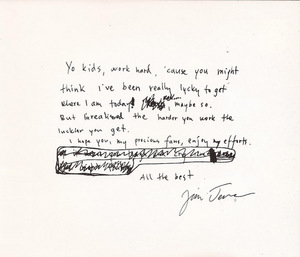 Yo kids, work hard, 'cause you might
think I've been really lycky to get
where I am today, maybe so.
But I realized the harder you work the
luckier you get.
I hope you, my precious fans, enjoy my efforts.
All the best
Jim